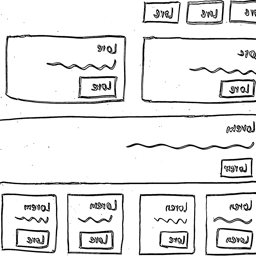 Lore
Lore
Lore
Lore
Lore
Lore
Lore
Lorem
Lorem
Lorem
Lore
Lorem
Lore
Loren
Lore
Loren
Loren